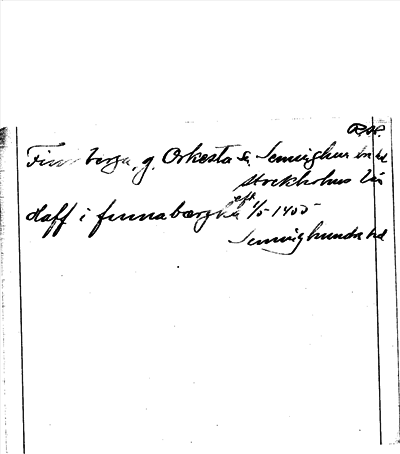 Finnberga, g. Orkesta s:n Seminghundra hd
Stockholms län
Haff i finnabærgha eft 1/5 1405
Seminghundra hd